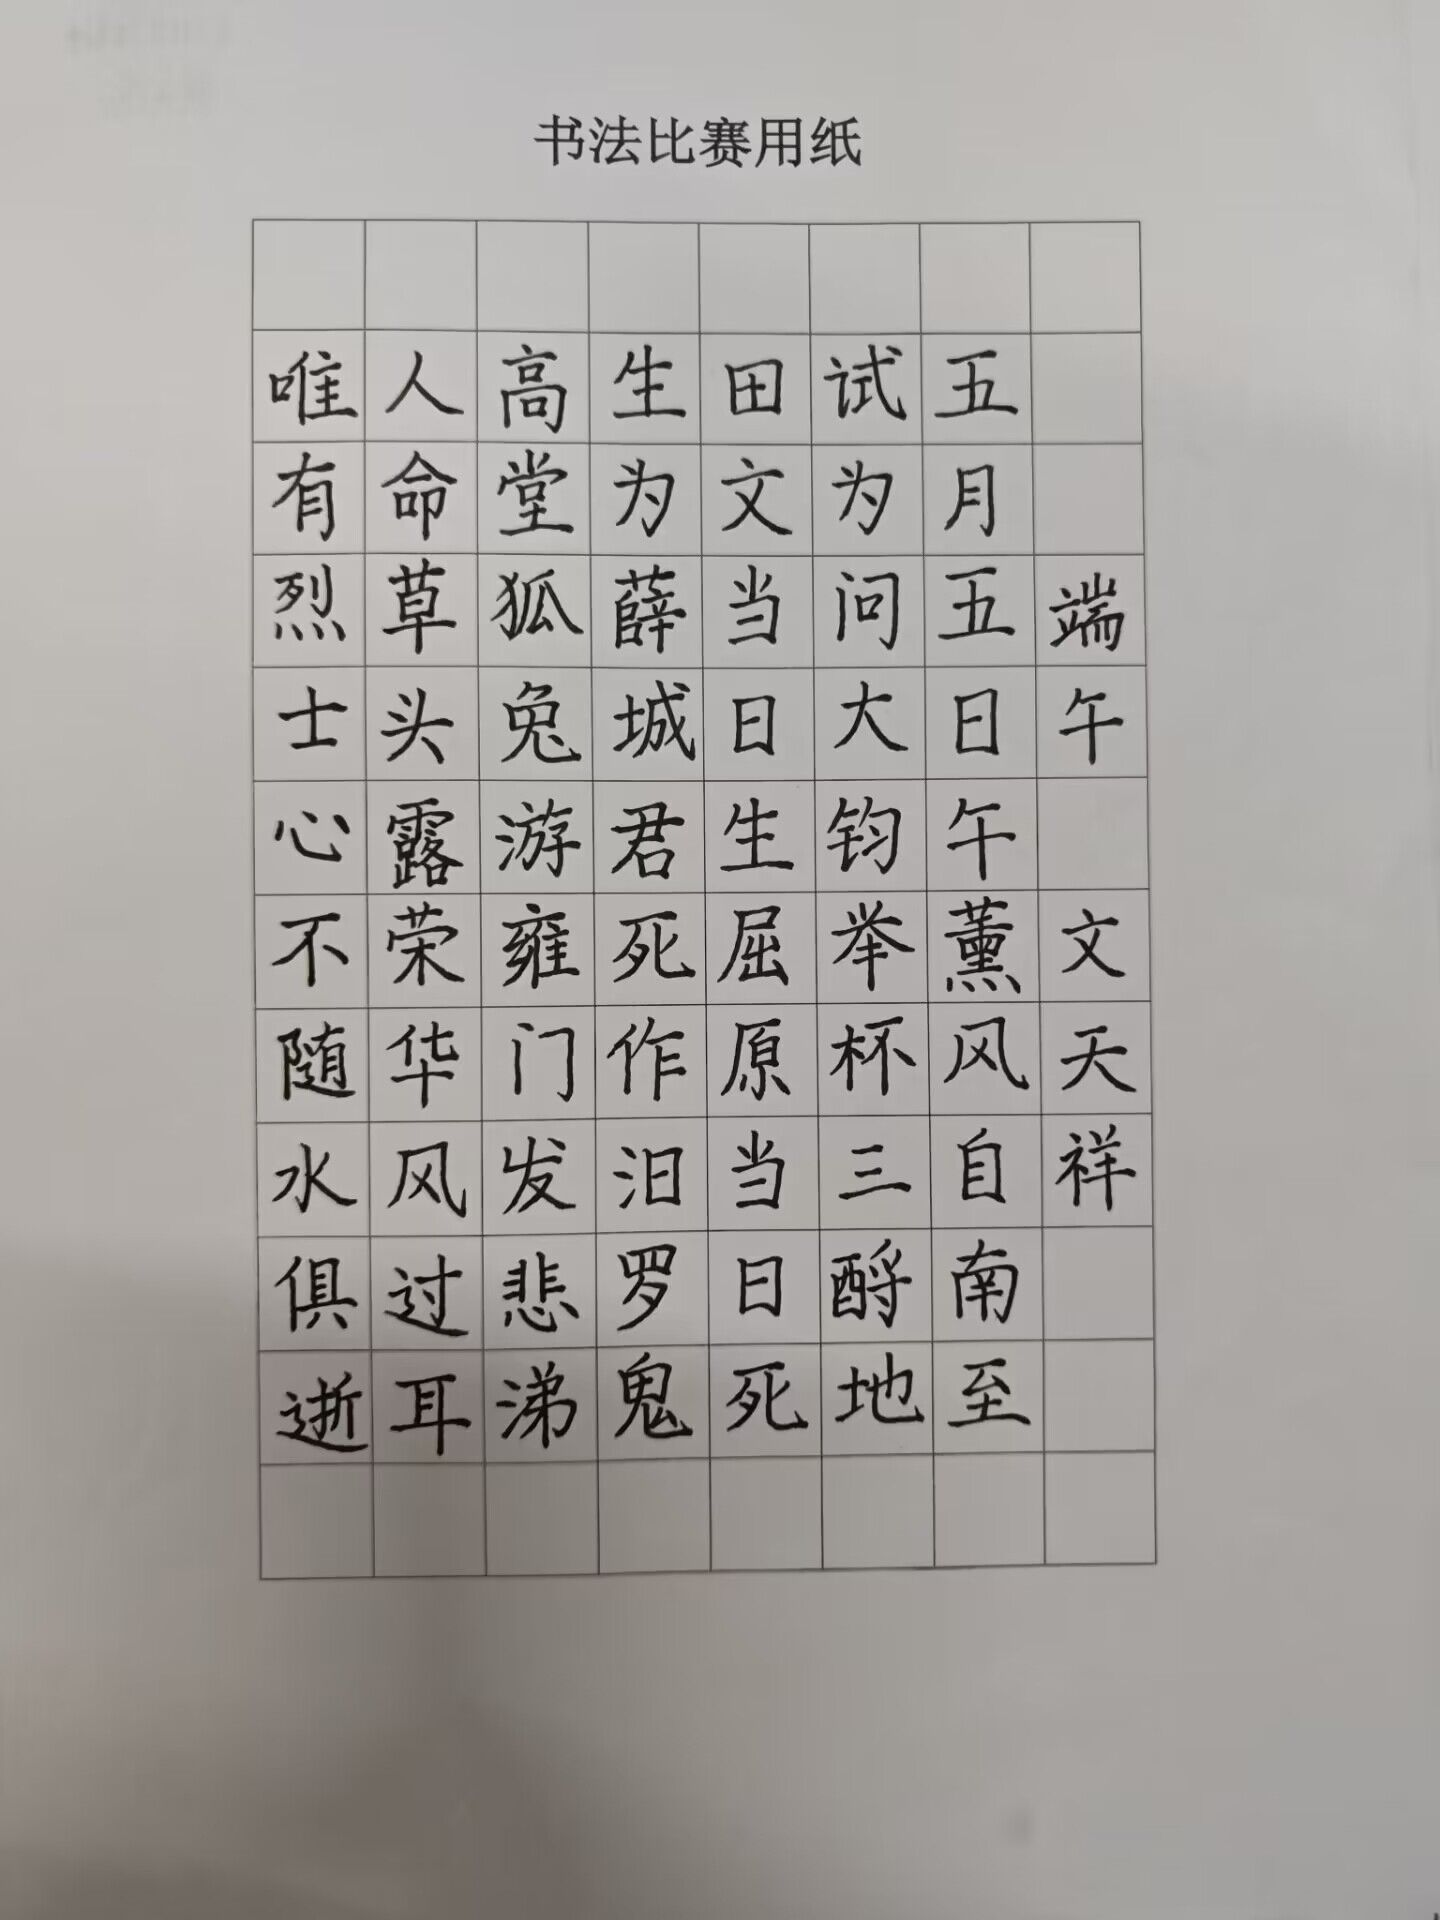 书法比赛用纸
端午 文天祥
五月五日午薰风自南至
试为问大钧举杯三酹地
田文当日生屈原当日死
生为薛城君死作汨罗鬼
高堂狐兔游雍门发悲涕
人命草头露荣华风过耳
唯有烈士心不随水俱逝